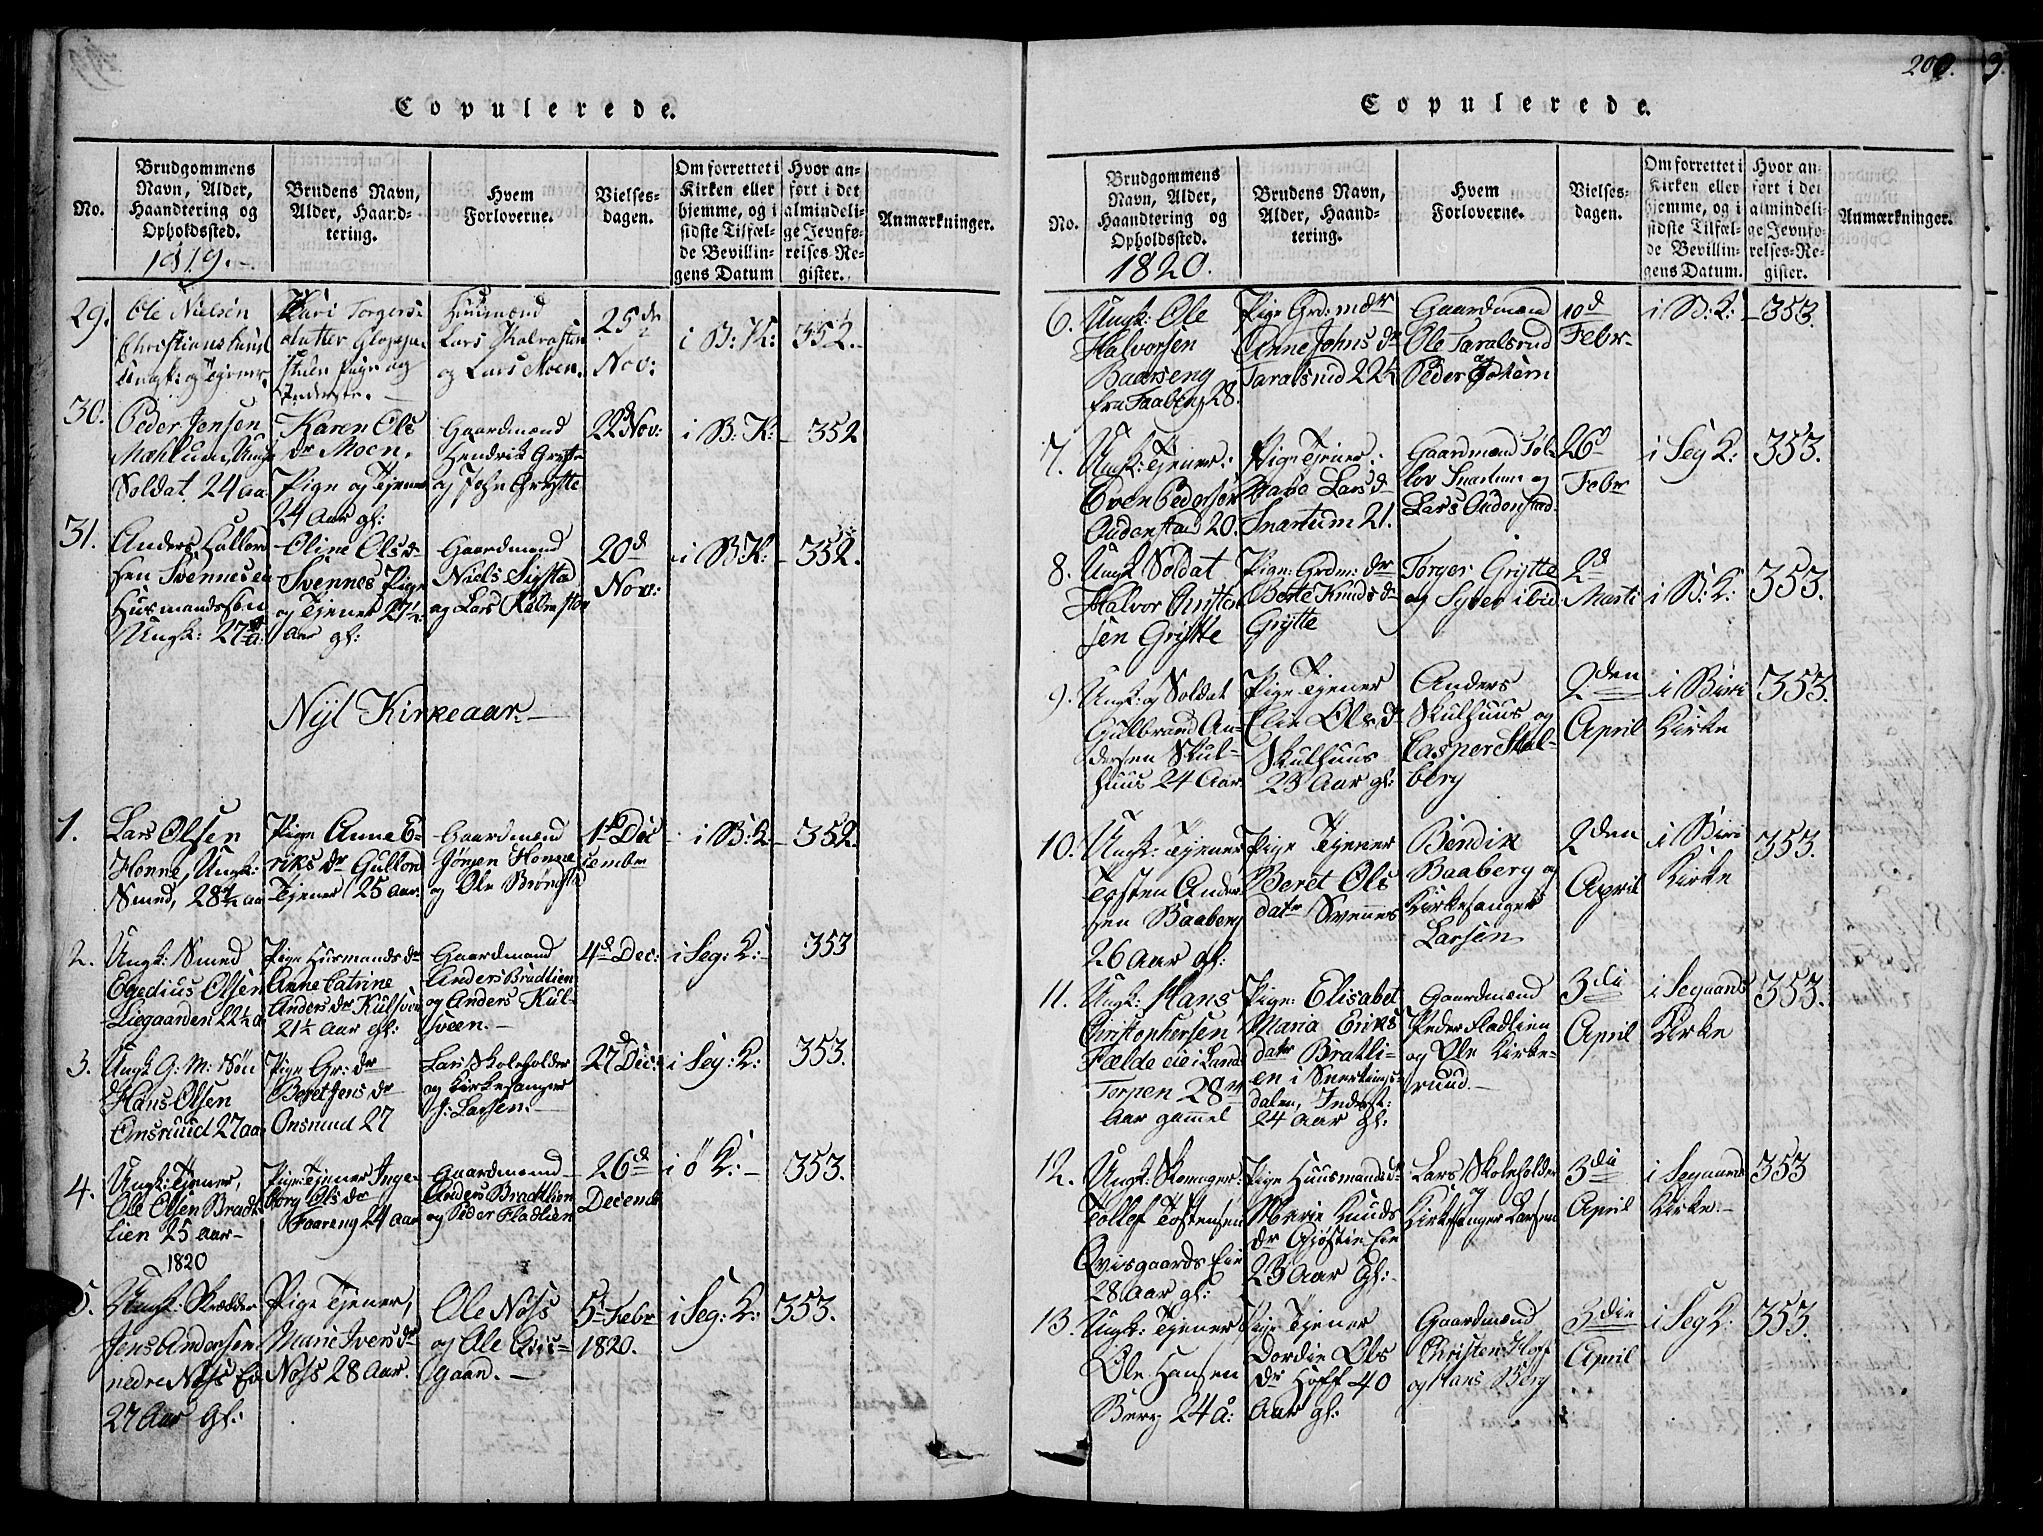 Copulerede.
No.
Brudgommens
Navn, Alder,
Haandtering og
Opholdssted.
1819.
Brudens Navn,
Alder, Haand-
tering.
Hvem
Forloverne.
Vielses-
dagen.
Om forrettet i
Kirken eller
hjemme, og i
sidste Tilfæl-
de Bevillin-
gens Datum
Hvor an-
ført i det
almindeli-
ge Jevnfø-
relses-Re-
gister.
Anmærkninger.
29.
Ole Nielsen
Christianslund
Ungk: og Tjener
Kari Torgers
datter
Pige og
Inderste.
Huusmænd
Lars Kalrasten
og Lars Moen.
25de
Nov:
i B: K:
352.
30.
Peder Jensen
Mæhlum, Ungk
Soldat 24 aa
Karen Ols
dr Moen,
Pige og Tjener
24 Aar gl:
Gaardmænd
Hendrik Grytte
og John Grytte
22 Nov:
i B: K:
352
31.
Anders
sen Svennesei
Husmandssøn
Ungk: 27 a:
Oline Olsd
Svennes Pige
og Tjener 27½
Aar gl:
Gaardmænd
Niels Sigstad
og Lars Kalrasten
20d
Nov:
i B: K:
352.
Nyt Kirkeaar.
1.
Lars Olsen
Honne, Ungk:
Smed, 28½ aa
Pige Anne E-
riks dr Gullord
Tjener 25 aar.
Gaardmænd
Jørgen Honne
og Ole Brøngstad
1ste Dec
cembr
i B: K
352.
2.
Ungk: Smed
Egedius Olsen
Liegaarden 22½ a
Pige Husmands dr
Anne Catrine
Anders dr Kulsveen
21½ Aar gl:
Gaardmænd
Anders Bradtlien
og Anders Kul-
sveen.
4d Dec:
i Seg: K:
353
3.
Ungk G: M: Søn
Hans Olsen
Onsruud 27 aa
Pige Gr: dr
Beret Jens dr
Onsruud 27
Lars Skoleholder
og Kirkesanger
J: Larsen.
27 Dec:
i Seg: K:
353.
4.
Ungk: Tjener,
Ole Olsen Bradt-
lien 25 aar
Pige: Tjener Inge-
borg Ols dr
Faareng 24 aar
Gaardmænd
Anders Bradtlien
og Peder Fladlien
26d
Decemb
i Ø K:
353.
1820
5.
Ungk: Skrædder
Jens Andersen
nedre Nøss Eie
27 Aar gl:
Pige Tjener,
Marie Ivers dr
Nøss 28 Aar.
Ole Nøss
og Ole Qvis-
gaard.
5 Febr
1820.
i Seg: K:
353.
200.
Copulerede.
No.
Brudgommens
Navn, Alder,
Haandtering og
Opholdssted.
1820.
Brudens Navn,
Alder, Haand-
tering.
Hvem
Forloverne.
Vielses-
dagen.
Om forrettet i
Kirken eller
hjemme, og i
sidste Tilfæl-
de Bevillin-
gens Datum.
Hvor an-
ført i det
almindeli-
ge Jevnfø-
relses-Re-
gister.
Anmærkninger.
6.
Ungk: Ole
Halvorsen
Baarseng
fra Faaberg 28.
Pige Grd: m dr
Anne Johns dr
Taralsrud 22½
Gaardmænd
Ole Taralsrud
Peder og
10d
Febr
i B: K:
353.
7.
Ungk: Tjener:
Even Pedersen
Oudenstad 20.
Pige: Tjener:
Mari Lars d
Snartum 21.
Gaardmænd Tol-
lov Snartum og
Lars Oudenstad.
26d
Febr
i Seg K:
353.
8.
Ungk Soldat
Halvor Christen
sen Grytte
Pige: Grdm: dr
Berte Knuds d
Grytte
Torger Grytte
og Syver ibid
2d
Marti
i B: K:
353.
9.
Ungk: og Soldat
Gulbrand An-
dersen Skul-
huus 24 Aar.
Pige Tjener
Eline Ols d
Skulhuus
23 Aar gl:
Anders
Skulhuus og
Casper Skul-
berg
2den
April
i Biri
Kirke
353.
10.
Ungk: Tjener
Tosten Ander
sen Baaberg
26 Aar gl:
Pige Tjener
Beret Ols
datr Svennes
Bendix
Baaberg og
Kirkesanger
Larsen
2den
April
i Biri
Kirke
353.
11.
Ungk: Hans
Christophersen
Fælde eie i Land
Torpen 28
Aar gammel
Pige: Elisabet
Maria Eriks
datr Bratli-
en i Snertings-
dalen, Inderst:
24 Aar gl:
Gaardmænd
Peder Fladlien
og Ole Kirke-
ruud.
3die
April
i Segaards
Kirke
353.
12.
Ungk:
Tollef Tostensen
Qvisgaards Eie
28 Aar gl:
Pige Huusmandsd:
Marie Knuds
dr Gjøstie Eie
23 Aar gl:
Lars Skoleholder
og
Kirkesanger Larsen
3die
April
i Segaard
Kirke
353
13.
Ungk: Tjener
Ole Hansen
Berg 24 a:
Pige Tjener
Dordie Ols
dr Hoff 40
Aar gl:
Gaardmænd
Christen Hoff
og Hans Berg
3die
April
i Seg K:
353.